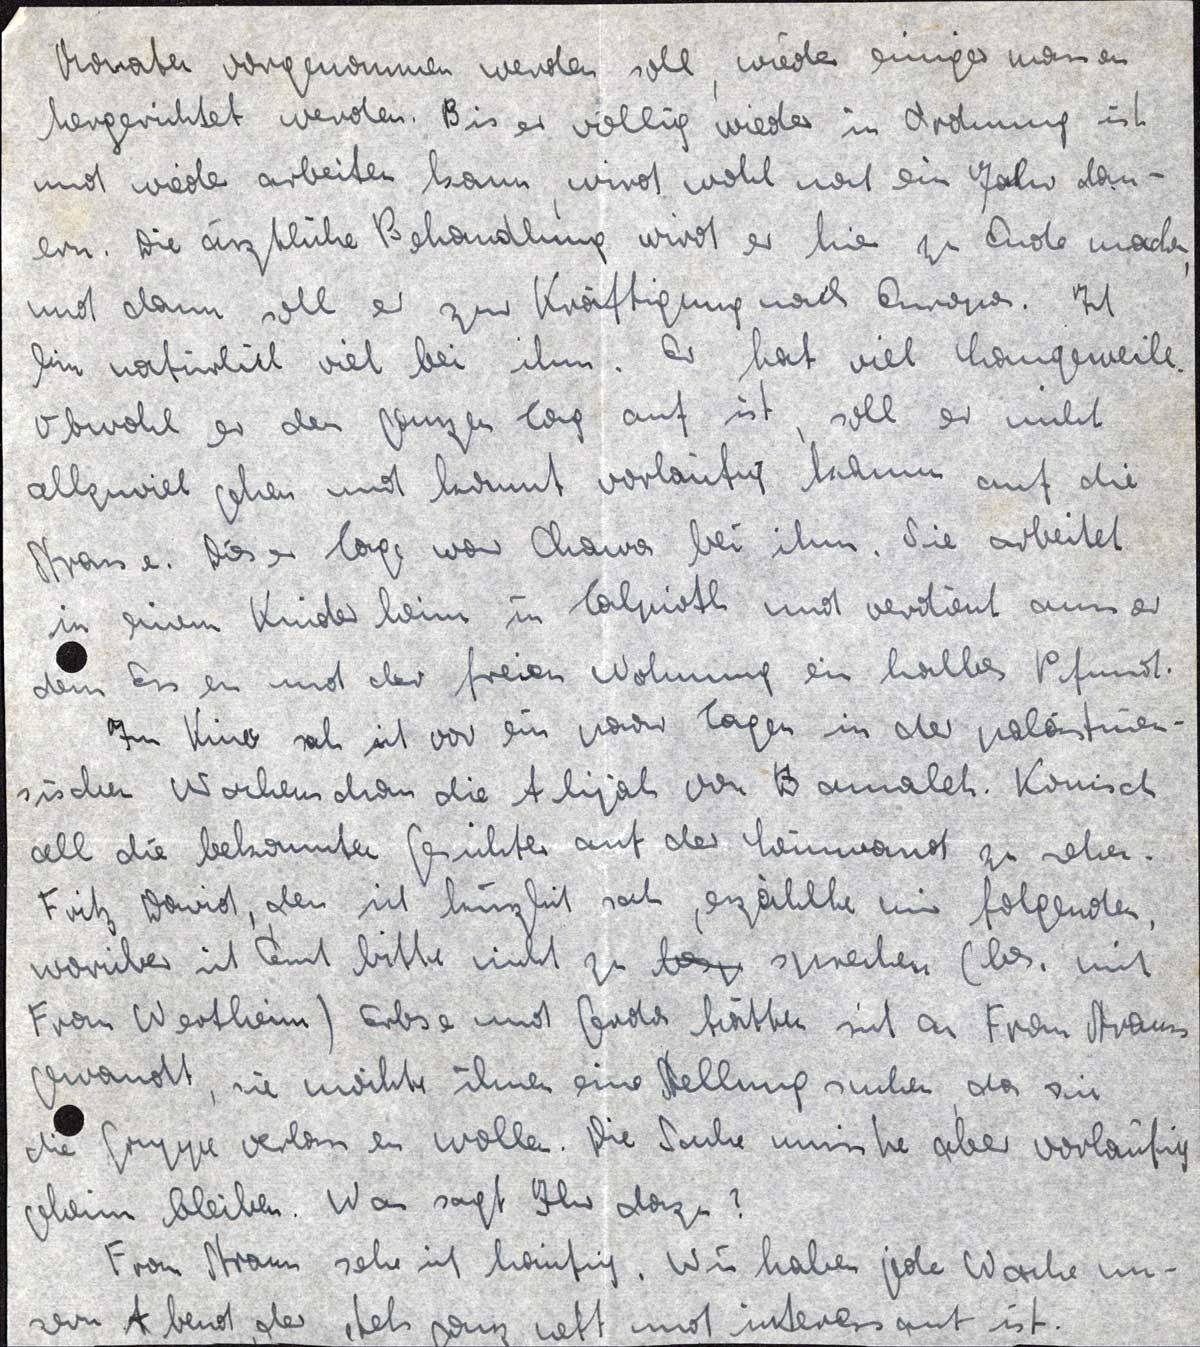 Monaten vorgenommen werden soll, wieder einigermassen
hergerichtet werden. Bis er völlig wieder in Ordnung ist
und wieder arbeiten kann, wird wohl noch ein Jahr dau-
ern. Die ärztliche Behandlung wird er hier zu Ende machen,
und dann soll er zur Kräftigung nach Europa. Ich
bin natürlich viel bei ihm. Er hat viel Langeweile.
Obwohl er den ganzen Tag auf ist, soll er nicht
allzuviel gehen und kommt vorläufig kaum auf die
Strasse. Dieser Tage war Chawa bei ihm. Sie arbeitet
in einem Kinderheim in Talpioth und verdient ausser
dem Essen und der freien Wohnung ein halbes Pfund.
Im Kino sah ich vor ein paar Tagen in der palästinen-
sischen Wochenschau die Alijah von Bamaleh. Komisch
all die bekannten Gesichter auf der Leinwand zu sehen.
Fritz David, den ich kürzlich sah, erzählte mir folgendes,
worüber ich Euch bitte nicht zu sprechen (bes. mit
Frau Wertheim) Erbse und Gerda hätten sich an Frau Strauss
gewandt, sie möchte ihnen eine Stellung suchen, da sie
die Gruppe verlassen wollen. Die Sache müsste aber vorläufig
geheim bleiben. Was sagt Ihr dazu?
Frau Strauss sehe ich häufig. Wir haben jede Woche un-
sern Abend, der stets ganz nett und interessant ist.